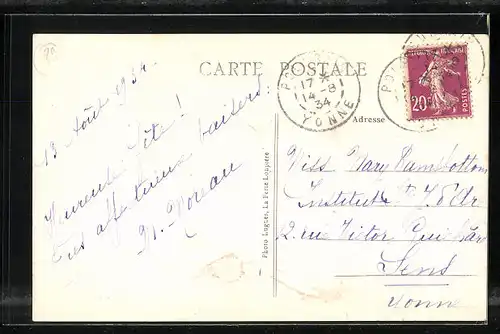 CARTE POSTALE
17 *
14 - 8
34
YONNE
20c
POSTES
Adresse
13 Août 1934
Heureuse fête !
affectueux baisers.
M. Moreau
Photo Logues, La Ferté-Loupière
Miss Mary Ramsbottom
Institut
2. rue Victor Guichard
Sens
Yonne